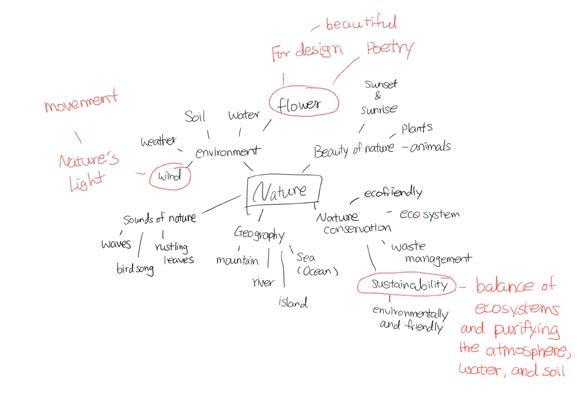 beautiful
For design
Poetry
movement
Nature's
Light
Soil
water
flower
Sunset
&
sunrise
weather
environment
Plants
Beauty of nature
animals
wind
Nature
ecofriendly
Sounds of nature
Nature
conservation
ecosystem
waves
rustling
leaves
birdsong
Geography
mountain
river
island
Sea
(Ocean)
waste
management
sustainability
environmentally
and friendly
balance of
ecosystems
and purifying
the atmosphere,
water, and soil